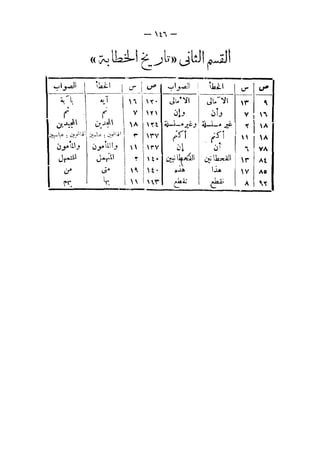 — ١٤٦ —
القسم الثانى «تاريخ الخطابة»
ص س الخطأ الصواب ص س الخطأ الصواب
٩ ١٣ الآمالى الأمالى ١٢٠ ١٦ آية بآية
١٦ ٧ وأن وإن ١٢١ ٧ ثم ثم
١٨ ٢ غير مسلسلة وغير مسلسلة ١٢٤ ١٨ المجدين المجيدين
١٨ ١١ أكتم أكثم ١٣٧ ٣
٧٨ ٦ أن إن ١٣٧ ١١ والمأمون والمأمون
٨٤ ١٣ القحطانين القحطانيين ١٤٠ ٢ المتهمل المتمهل
٨٥ ١٧ هذا هذه ١٤٠ ١٩ متى من
٩٢ ٨ نقطع تقطع ١١٣ ١١ بها بهم